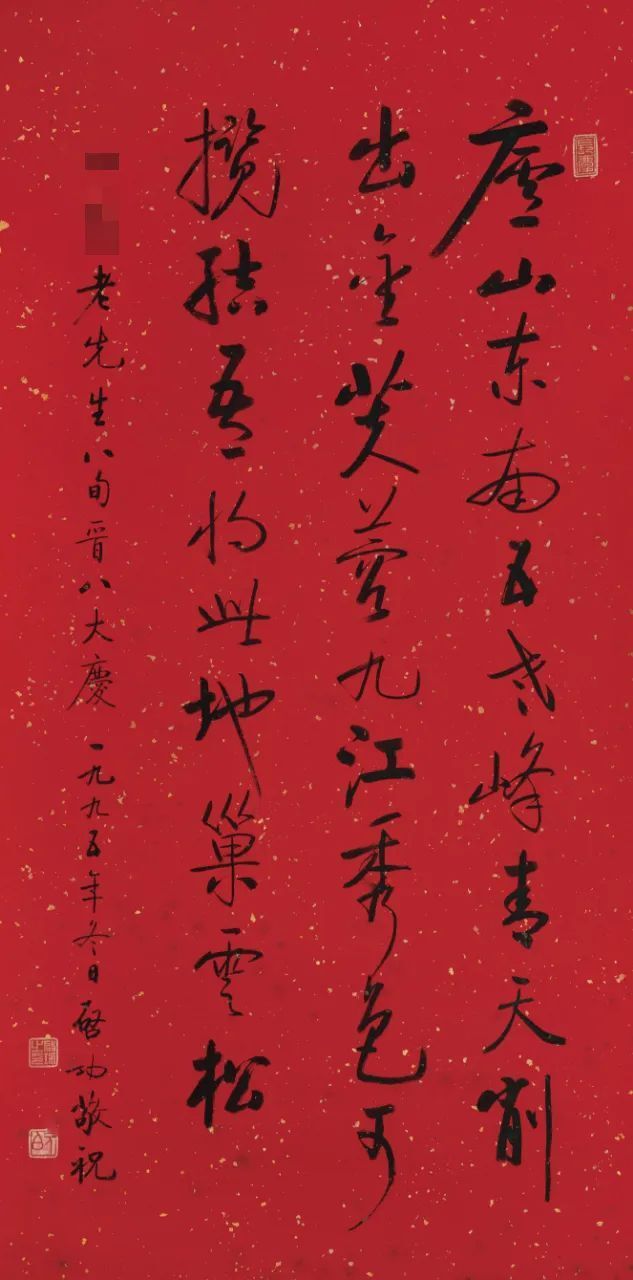 廬山東南五老峰青天削
出金芙蓉九江秀色可
攬結吾将此地巢雲松
老先生八旬晋八大慶 一九九五年冬日 啓功敬祝